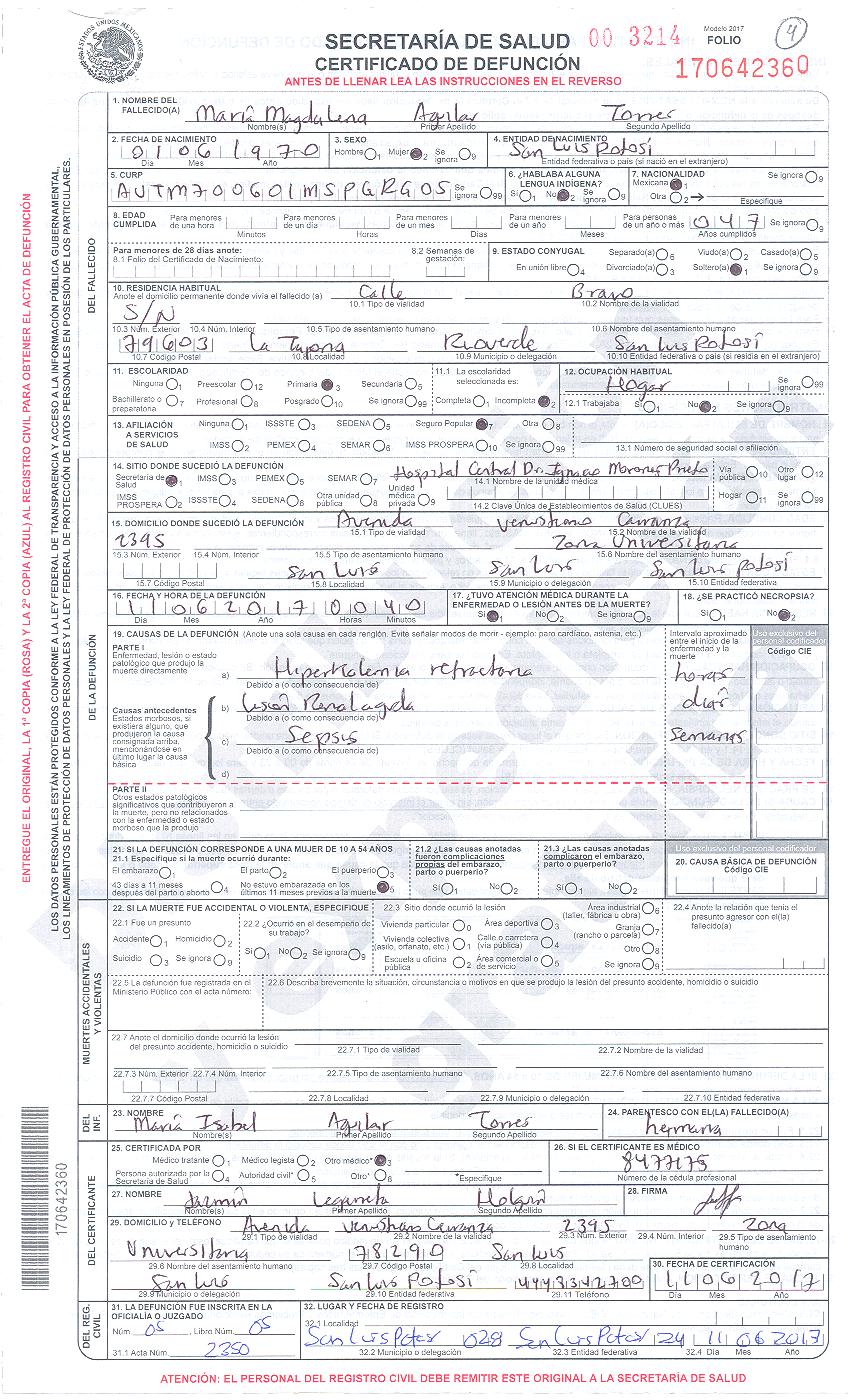 ESTADOS UNIDOS MEXICANOS
SECRETARÍA DE SALUD 00 3214 Modelo 2017 FOLIO 4
CERTIFICADO DE DEFUNCIÓN 170642360
ANTES DE LLENAR LEA LAS INSTRUCCIONES EN EL REVERSO
ENTREGUE EL ORIGINAL, LA 1ª COPIA (ROSA) Y LA 2ª COPIA (AZUL) AL REGISTRO CIVIL PARA OBTENER EL ACTA DE DEFUNCIÓN
LOS DATOS PERSONALES ESTÁN PROTEGIDOS CONFORME A LA LEY FEDERAL DE TRANSPARENCIA Y ACCESO A LA INFORMACIÓN PÚBLICA GUBERNAMENTAL,
LOS LINEAMIENTOS DE PROTECCIÓN DE DATOS PERSONALES Y LA LEY FEDERAL DE PROTECCIÓN DE DATOS PERSONALES EN POSESIÓN DE LOS PARTICULARES.
DEL FALLECIDO
1. NOMBRE DEL FALLECIDO(A) María Magdalena Aguilar Torres
Nombre(s) Primer Apellido Segundo Apellido
2. FECHA DE NACIMIENTO 01061970 3. SEXO Hombre 1 Mujer 2 Se ignora 9 4. ENTIDAD DE NACIMIENTO San Luis Potosí
Día Mes Año Entidad federativa o país (si nació en el extranjero)
5. CURP AUTM700601MSPGRG05 Se ignora 99 6. ¿HABLABA ALGUNA LENGUA INDÍGENA? Sí 1 No 2 Se ignora 9 7. NACIONALIDAD Mexicana 1 Otra 2 Especifique Se ignora 9
8. EDAD CUMPLIDA Para menores de una hora Minutos Para menores de un día Horas Para menores de un mes Días Para menores de un año Meses Para personas de un año o más 047 Años cumplidos Se ignora 9
Para menores de 28 días anote: 8.1 Folio del Certificado de Nacimiento: 8.2 Semanas de gestación: 9. ESTADO CONYUGAL Separado(a) 6 Viudo(a) 2 Casado(a) 5
En unión libre 4 Divorciado(a) 3 Soltero(a) 1 Se ignora 9
10. RESIDENCIA HABITUAL Calle Bravo
Anote el domicilio permanente donde vivía el fallecido (a) 10.1 Tipo de vialidad 10.2 Nombre de la vialidad
S/N
10.3 Núm. Exterior 10.4 Núm. Interior 10.5 Tipo de asentamiento humano 10.6 Nombre del asentamiento humano
79603 La Tapona Rioverde San Luis Potosí
10.7 Código Postal 10.8 Localidad 10.9 Municipio o delegación 10.10 Entidad federativa o país (si residía en el extranjero)
11. ESCOLARIDAD Ninguna 1 Preescolar 12 Primaria 3 Secundaria 5 11.1 La escolaridad seleccionada es: 12. OCUPACIÓN HABITUAL Hogar Se ignora 99
Bachillerato o preparatoria 7 Profesional 8 Posgrado 10 Se ignora 99 Completa 1 Incompleta 2 12.1 Trabajaba Sí 1 No 2 Se ignora 9
13. AFILIACIÓN A SERVICIOS DE SALUD Ninguna 1 ISSSTE 3 SEDENA 5 Seguro Popular 7 Otra 8
IMSS 2 PEMEX 4 SEMAR 6 IMSS PROSPERA 10 Se ignora 99 13.1 Número de seguridad social o afiliación
DE LA DEFUNCIÓN
14. SITIO DONDE SUCEDIÓ LA DEFUNCIÓN Hospital Central Dr. Ignacio Morones Prieto
Secretaría de Salud 1 IMSS 3 PEMEX 5 SEMAR 7 Unidad médica privada 9 14.1 Nombre de la unidad médica Vía pública 10 Otro lugar 12
IMSS PROSPERA 2 ISSSTE 4 SEDENA 6 Otra unidad pública 8 14.2 Clave Única de Establecimientos de Salud (CLUES) Hogar 11 Se ignora 99
15. DOMICILIO DONDE SUCEDIÓ LA DEFUNCIÓN Avenida Venustiano Carranza
15.1 Tipo de vialidad 15.2 Nombre de la vialidad
2395 Zona Universitaria
15.3 Núm. Exterior 15.4 Núm. Interior 15.5 Tipo de asentamiento humano 15.6 Nombre del asentamiento humano
San Luis San Luis San Luis Potosí
15.7 Código Postal 15.8 Localidad 15.9 Municipio o delegación 15.10 Entidad federativa
16. FECHA Y HORA DE LA DEFUNCIÓN 17. ¿TUVO ATENCIÓN MÉDICA DURANTE LA ENFERMEDAD O LESIÓN ANTES DE LA MUERTE? 18. ¿SE PRACTICÓ NECROPSIA?
11062017 0040 Sí 1 no 2 Se ignora 9 Sí 1 No 2
Día Mes Año Horas Minutos
19. CAUSAS DE LA DEFUNCIÓN (Anote una sola causa en cada renglón. Evite señalar modos de morir - ejemplo: paro cardíaco, astenia, etc.) Intervalo aproximado entre el inicio de la enfermedad y la muerte Uso exclusivo del personal codificador Código CIE
PARTE I
Enfermedad, lesión o estado patológico que produjo la muerte directamente a) Hiperkalemia refractaria horas
Debido a (o como consecuencia de)
Causas antecedentes b) Lesión Renal aguda días
Estados morbosos, si existiera alguno, que produjeron la causa consignada arriba, mencionándose en último lugar la causa básica Debido a (o como consecuencia de)
c) Sepsis Semanas
Debido a (o como consecuencia de)
d)
PARTE II
Otros estados patológicos significativos que contribuyeron a la muerte, pero no relacionados con la enfermedad o estado morboso que la produjo
21. SI LA DEFUNCIÓN CORRESPONDE A UNA MUJER DE 10 A 54 AÑOS
21.1 Especifique si la muerte ocurrió durante:
El embarazo 1 El parto 2 El puerperio 3
43 días a 11 meses después del parto o aborto 4 No estuvo embarazada en los últimos 11 meses previos a la muerte 5
21.2 ¿Las causas anotadas fueron complicaciones propias del embarazo, parto o puerperio? Sí 1 No 2
21.3 ¿Las causas anotadas complicaron el embarazo, parto o puerperio? Sí 1 No 2
Uso exclusivo del personal codificador
20. CAUSA BÁSICA DE DEFUNCIÓN
Código CIE
MUERTES ACCIDENTALES Y VIOLENTAS
22. SI LA MUERTE FUE ACCIDENTAL O VIOLENTA, ESPECIFIQUE
22.1 Fue un presunto Accidente 1 Homicidio 2 Suicidio 3 Se ignora 9
22.2 ¿Ocurrió en el desempeño de su trabajo? Sí 1 No 2 Se ignora 9
22.3 Sitio donde ocurrió la lesión
Vivienda particular 0 Área deportiva 3 Área industrial (taller, fábrica u obra) 6
Vivienda colectiva (asilo, orfanato, etc.) 1 Calle o carretera (vía pública) 4 Granja (rancho o parcela) 7
Escuela u oficina pública 2 Área comercial o de servicio 5 Otro 8 Se ignora 9
22.4 Anote la relación que tenía el presunto agresor con el(la) fallecido(a)
22.5 La defunción fue registrada en el Ministerio Público con el acta número: 22.6 Describa brevemente la situación, circunstancia o motivos en que se produjo la lesión del presunto accidente, homicidio o suicidio
22.7 Anote el domicilio donde ocurrió la lesión del presunto accidente, homicidio o suicidio 22.7.1 Tipo de vialidad 22.7.2 Nombre de la vialidad
22.7.3 Núm. Exterior 22.7.4 Núm. Interior 22.7.5 Tipo de asentamiento humano 22.7.6 Nombre del asentamiento humano
22.7.7 Código Postal 22.7.8 Localidad 22.7.9 Municipio o delegación 22.7.10 Entidad federativa
DEL INF.
23. NOMBRE María Isabel Aguilar Torres 24. PARENTESCO CON EL(LA) FALLECIDO(A) hermana
Nombre(s) Primer Apellido Segundo Apellido
DEL CERTIFICANTE
25. CERTIFICADA POR 26. SI EL CERTIFICANTE ES MÉDICO
Médico tratante 1 Médico legista 2 Otro médico* 3 8477175
Persona autorizada por la Secretaría de Salud 4 Autoridad civil* 5 Otro* 6 *Especifique Número de la cédula profesional
27. NOMBRE Legorreta 28. FIRMA
Nombre(s) Primer Apellido Segundo Apellido
29. DOMICILIO Y TELÉFONO Avenida Venustiano Carranza 2395 Zona
29.1 Tipo de vialidad 29.2 Nombre de la vialidad 29.3 Núm. Exterior 29.4 Núm. Interior 29.5 Tipo de asentamiento humano
Universitaria 78290 San Luis
29.6 Nombre del asentamiento humano 29.7 Código Postal 29.8 Localidad
San Luis San Luis Potosí 4448342700 30. FECHA DE CERTIFICACIÓN 11062017
29.9 Municipio o delegación 29.10 Entidad federativa 29.11 Teléfono Día Mes Año
DEL REG. CIVIL
31. LA DEFUNCIÓN FUE INSCRITA EN LA OFICIALÍA O JUZGADO 32. LUGAR Y FECHA DE REGISTRO
Núm. 05, Libro Núm. 05 32.1 Localidad
31.1 Acta Núm. 2350 San Luis Potosí 028 San Luis Potosí 24 11 06 2017
32.2 Municipio o delegación 32.3 Entidad federativa 32.4 Día Mes Año
170642360
ATENCIÓN: EL PERSONAL DEL REGISTRO CIVIL DEBE REMITIR ESTE ORIGINAL A LA SECRETARÍA DE SALUD